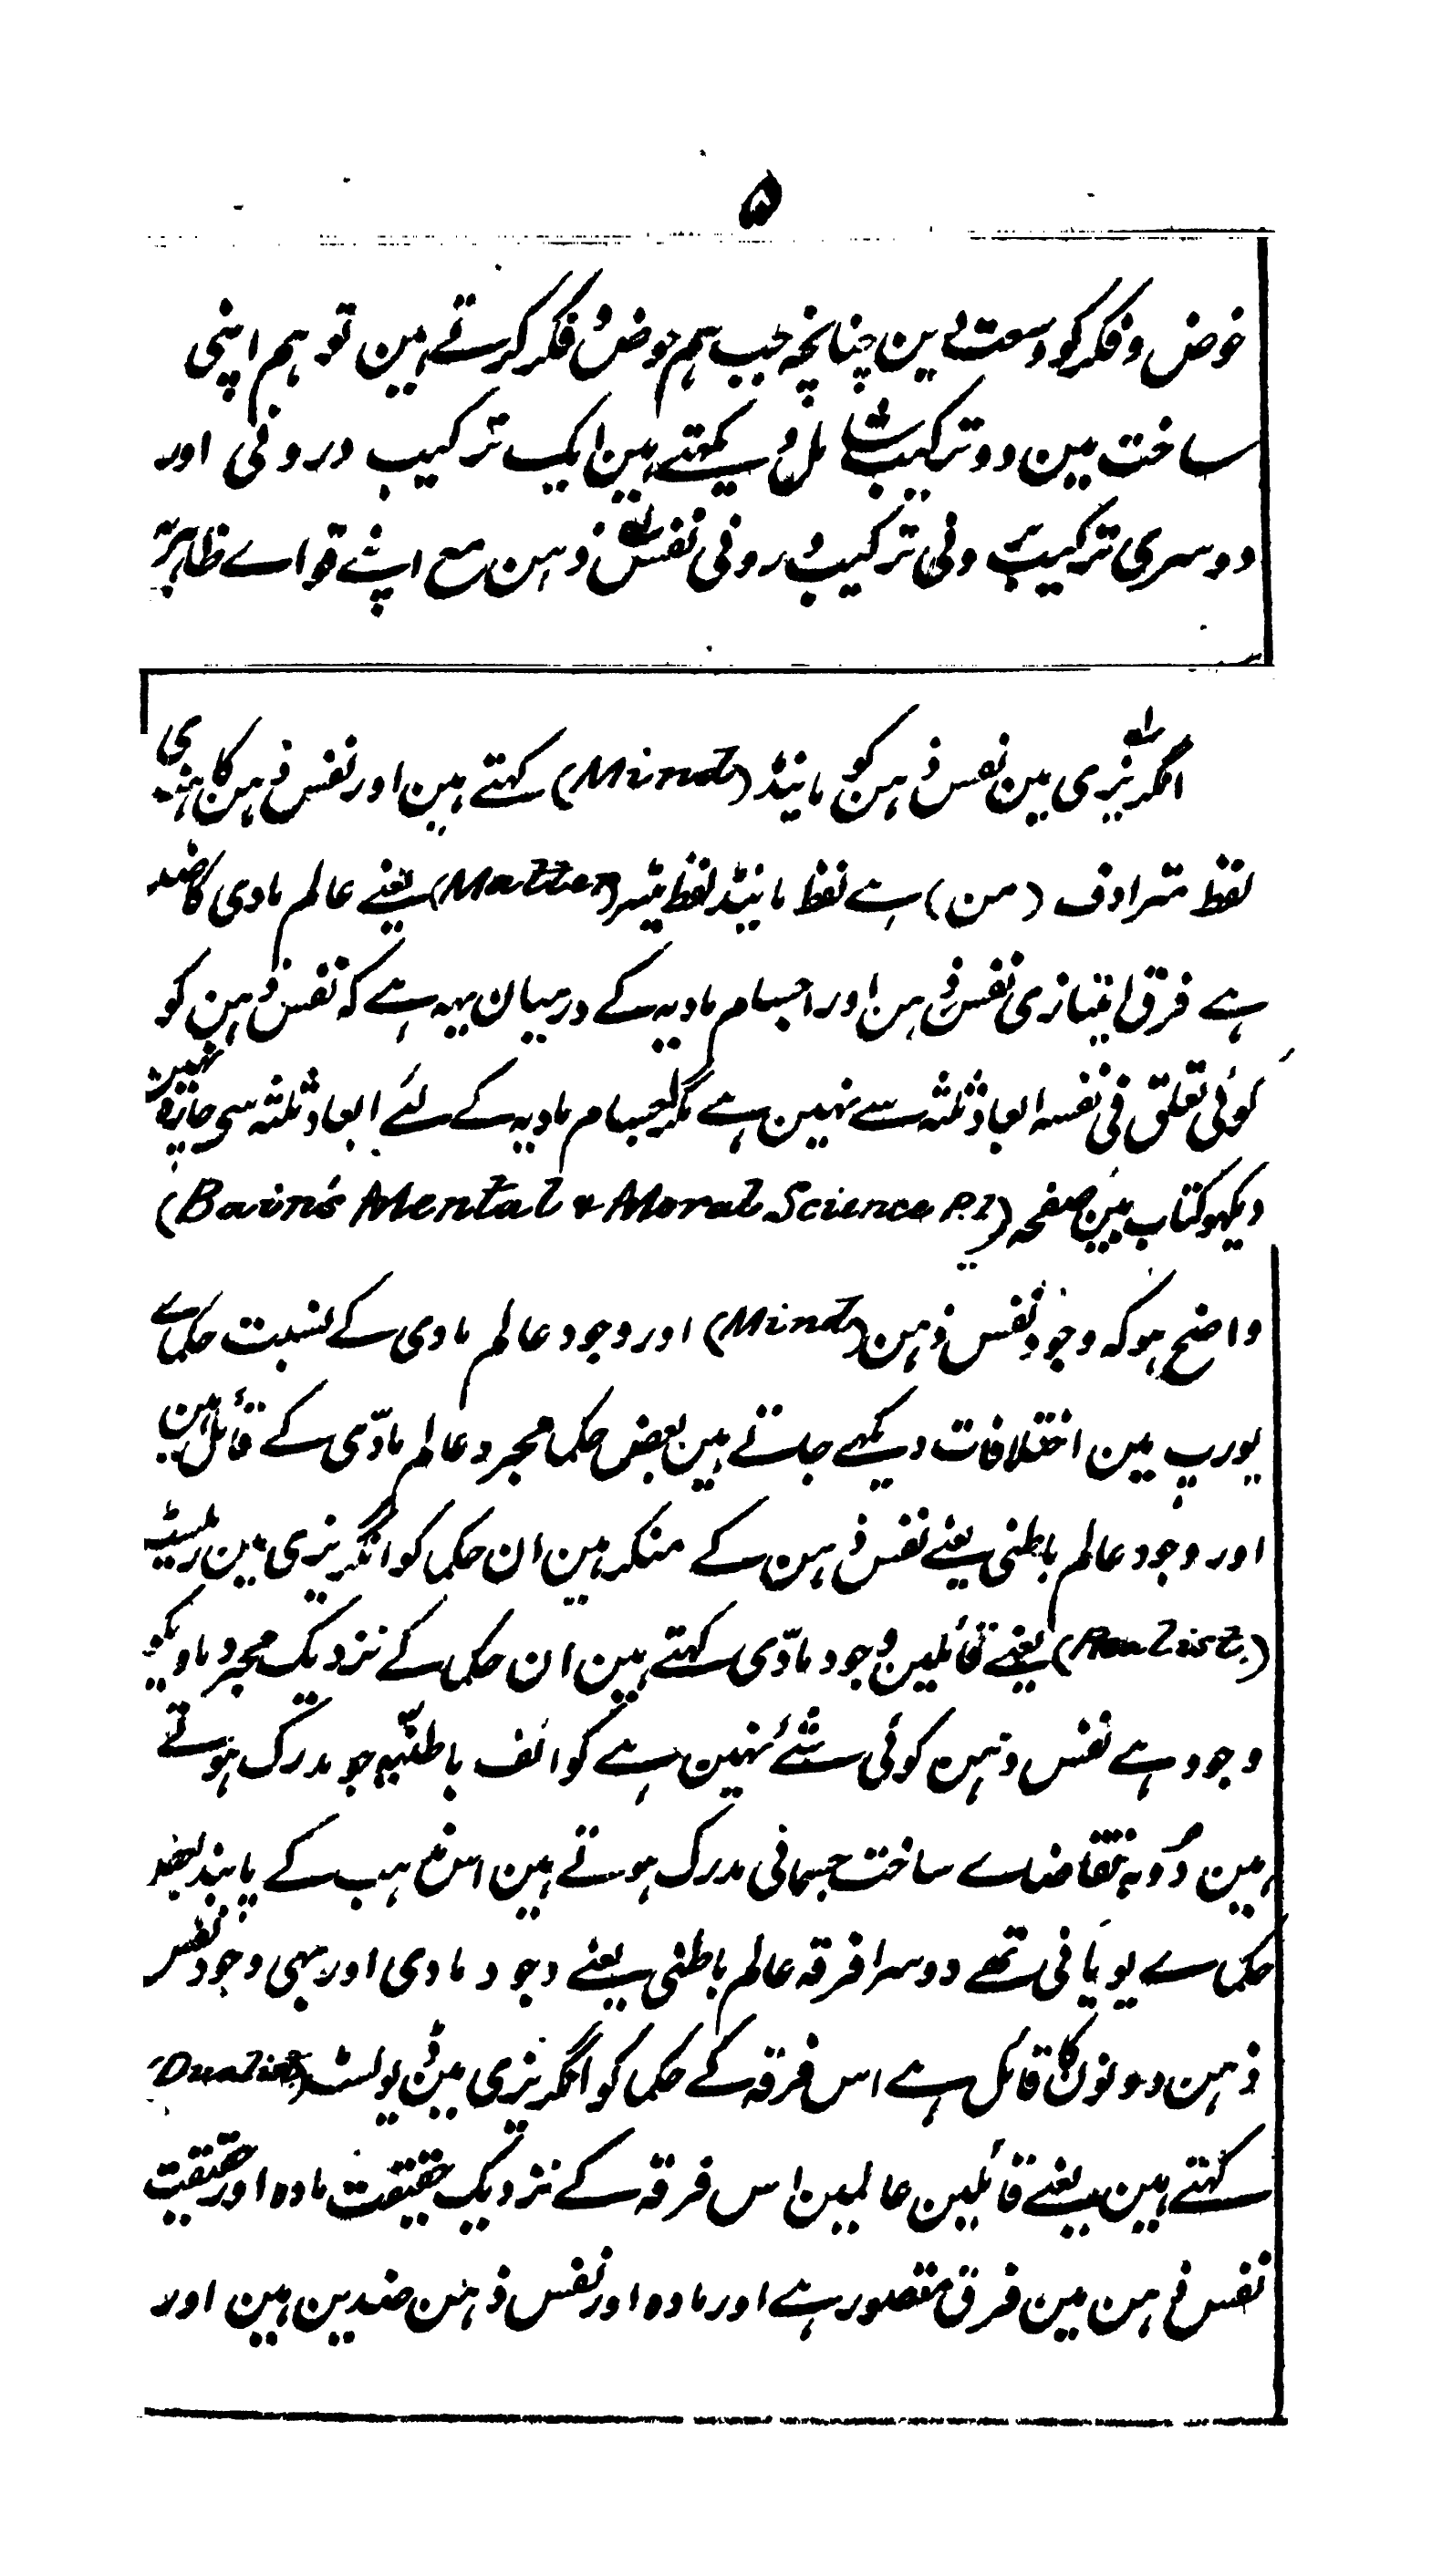 ۵
خوض و فکر کو وسعت دین چنانچہ جب ہم خوض و فکر کرتے ہین تو ہم اپنی
ساخت مین دو ترکیب شامل دیکہتے ہین ایک ترکیب درونی اور
دوسری ترکیب برونی ترکیب درونی نفس ذہن مع اپنے قواے ظاہرہ
انگریزی مین نفس ذہن کو مانیڈ (Mind) کہتے ہین اور نفس ذہن کا ہندی
لفظ مترادف (من) ہے لفظ مانیڈ لفظ میٹر (Matter) یعنے عالم مادی کا ضد
ہے فرق امتیازی نفس ذہن اور اجسام مادیہ کے درمیان یہہ ہے کہ نفس ذہن کو
کوئی تعلق فی نفسہ ابعاد ثلثہ سے نہین ہے مگر اجسام مادیہ کے لئے ابعاد ثلثہ سی چارہ نہین
دیکہو کتاب بین صفحہ (Bain's Mental & Moral Science P.1)
واضح ہو کہ وجود نفس ذہن (Mind) اور وجود عالم مادی کے نسبت حکماے
یورپ مین اختلافات دیکہے جاتے ہین بعض حکما مجرد عالم مادّی کے قائل ہین
اور وجود عالم باطنی یعنے نفس ذہن کے منکر ہین ان حکما کو انگریزی مین رلسیٹ
(Realist.) یعنے قائلین وجود مادّی کہتے ہین ان حکما کے نزدیک مجرد مادیکو
وجود ہے نفس ذہن کوئی شئے نہین ہے کوائف باطنیہ جو مدرک ہوتے
ہین وُہ بہ تقاضاے ساخت جسمانی مدرک ہوتے ہین اس مذہب کے پابند بعض
حکماے یونانی تھے دوسرا فرقہ عالم باطنی یعنے وجود مادی اور بہی وجود نفس
ذہن دونون کا قائل ہے اس فرقہ کے حکما کو انگریزی مین ڈیولسٹ (Dualist)
کہتے ہین یعنے قائلین عالمین اس فرقہ کے نزدیک حقیقت مادہ اور حقیقت
نفس ذہن مین فرق متصور ہے اور مادہ اور نفس ذہن ضدین ہین اور